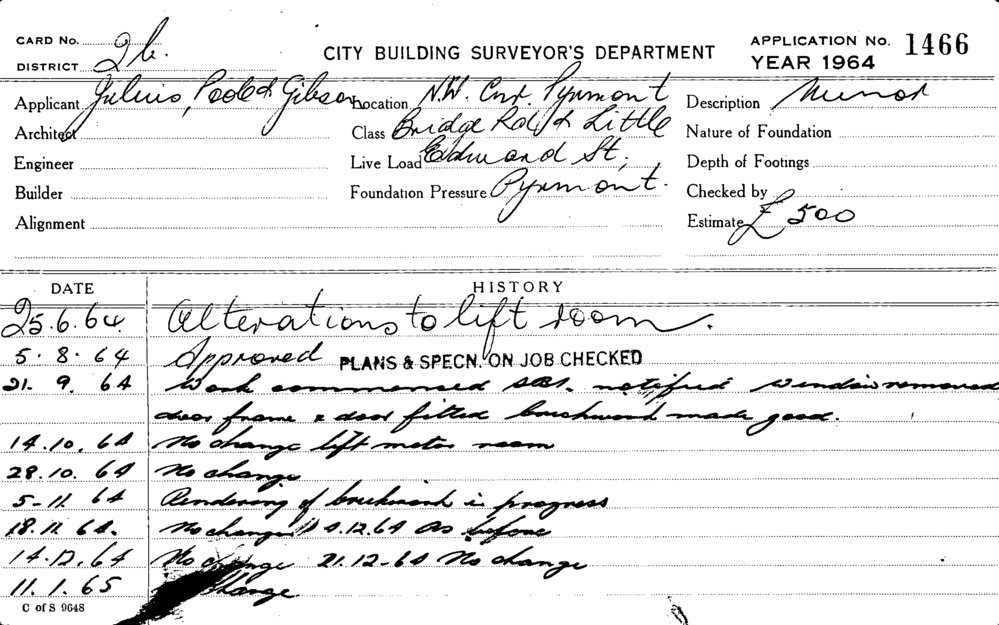 CARD No. 26.
DISTRICT
CITY BUILDING SURVEYOR'S DEPARTMENT
APPLICATION No. 1466
YEAR 1964
Applicant Julius, Poole & Gibson
Location N.W. Cnr. Pyrmont
Description Minor
Architect
Class Bridge Rd. & Little
Nature of Foundation
Engineer
Live Load Edward St,
Depth of Footings
Builder
Foundation Pressure Pyrmont.
Checked by
Alignment
Estimate £500
DATE HISTORY
25.6.64. Alterations to lift room.
5.8.64 Approved PLANS & SPECN. ON JOB CHECKED
21.9.64 Work commenced notified window removed
door frame & door fitted brickwork made good.
14.10.64 No change lift motor room
28.10.64 No change
5-11.64 Rendering of brickwork in progress
18.11.64. No change 4.12.64 As before
14.12.64 No change 21.12-64 No change
11.1.65 change
C of S 9648